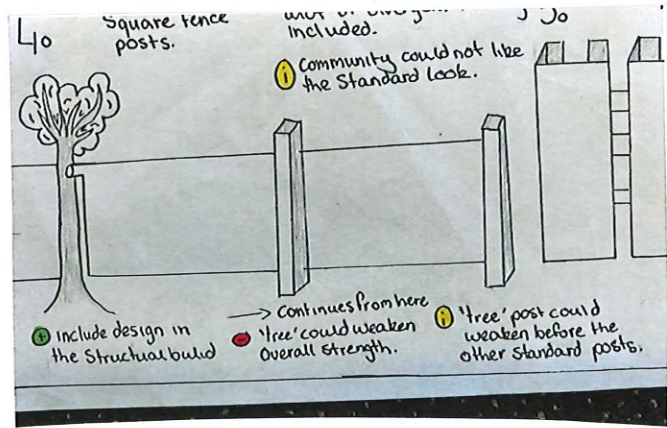 40
Square fence
posts.
included.
i Community could not like
the Standard look.
+ include design in
the Structual build
→ Continues from here
- 'tree' could weaken
Overall strength.
i 'tree' post could
weaken before the
other Standard posts.